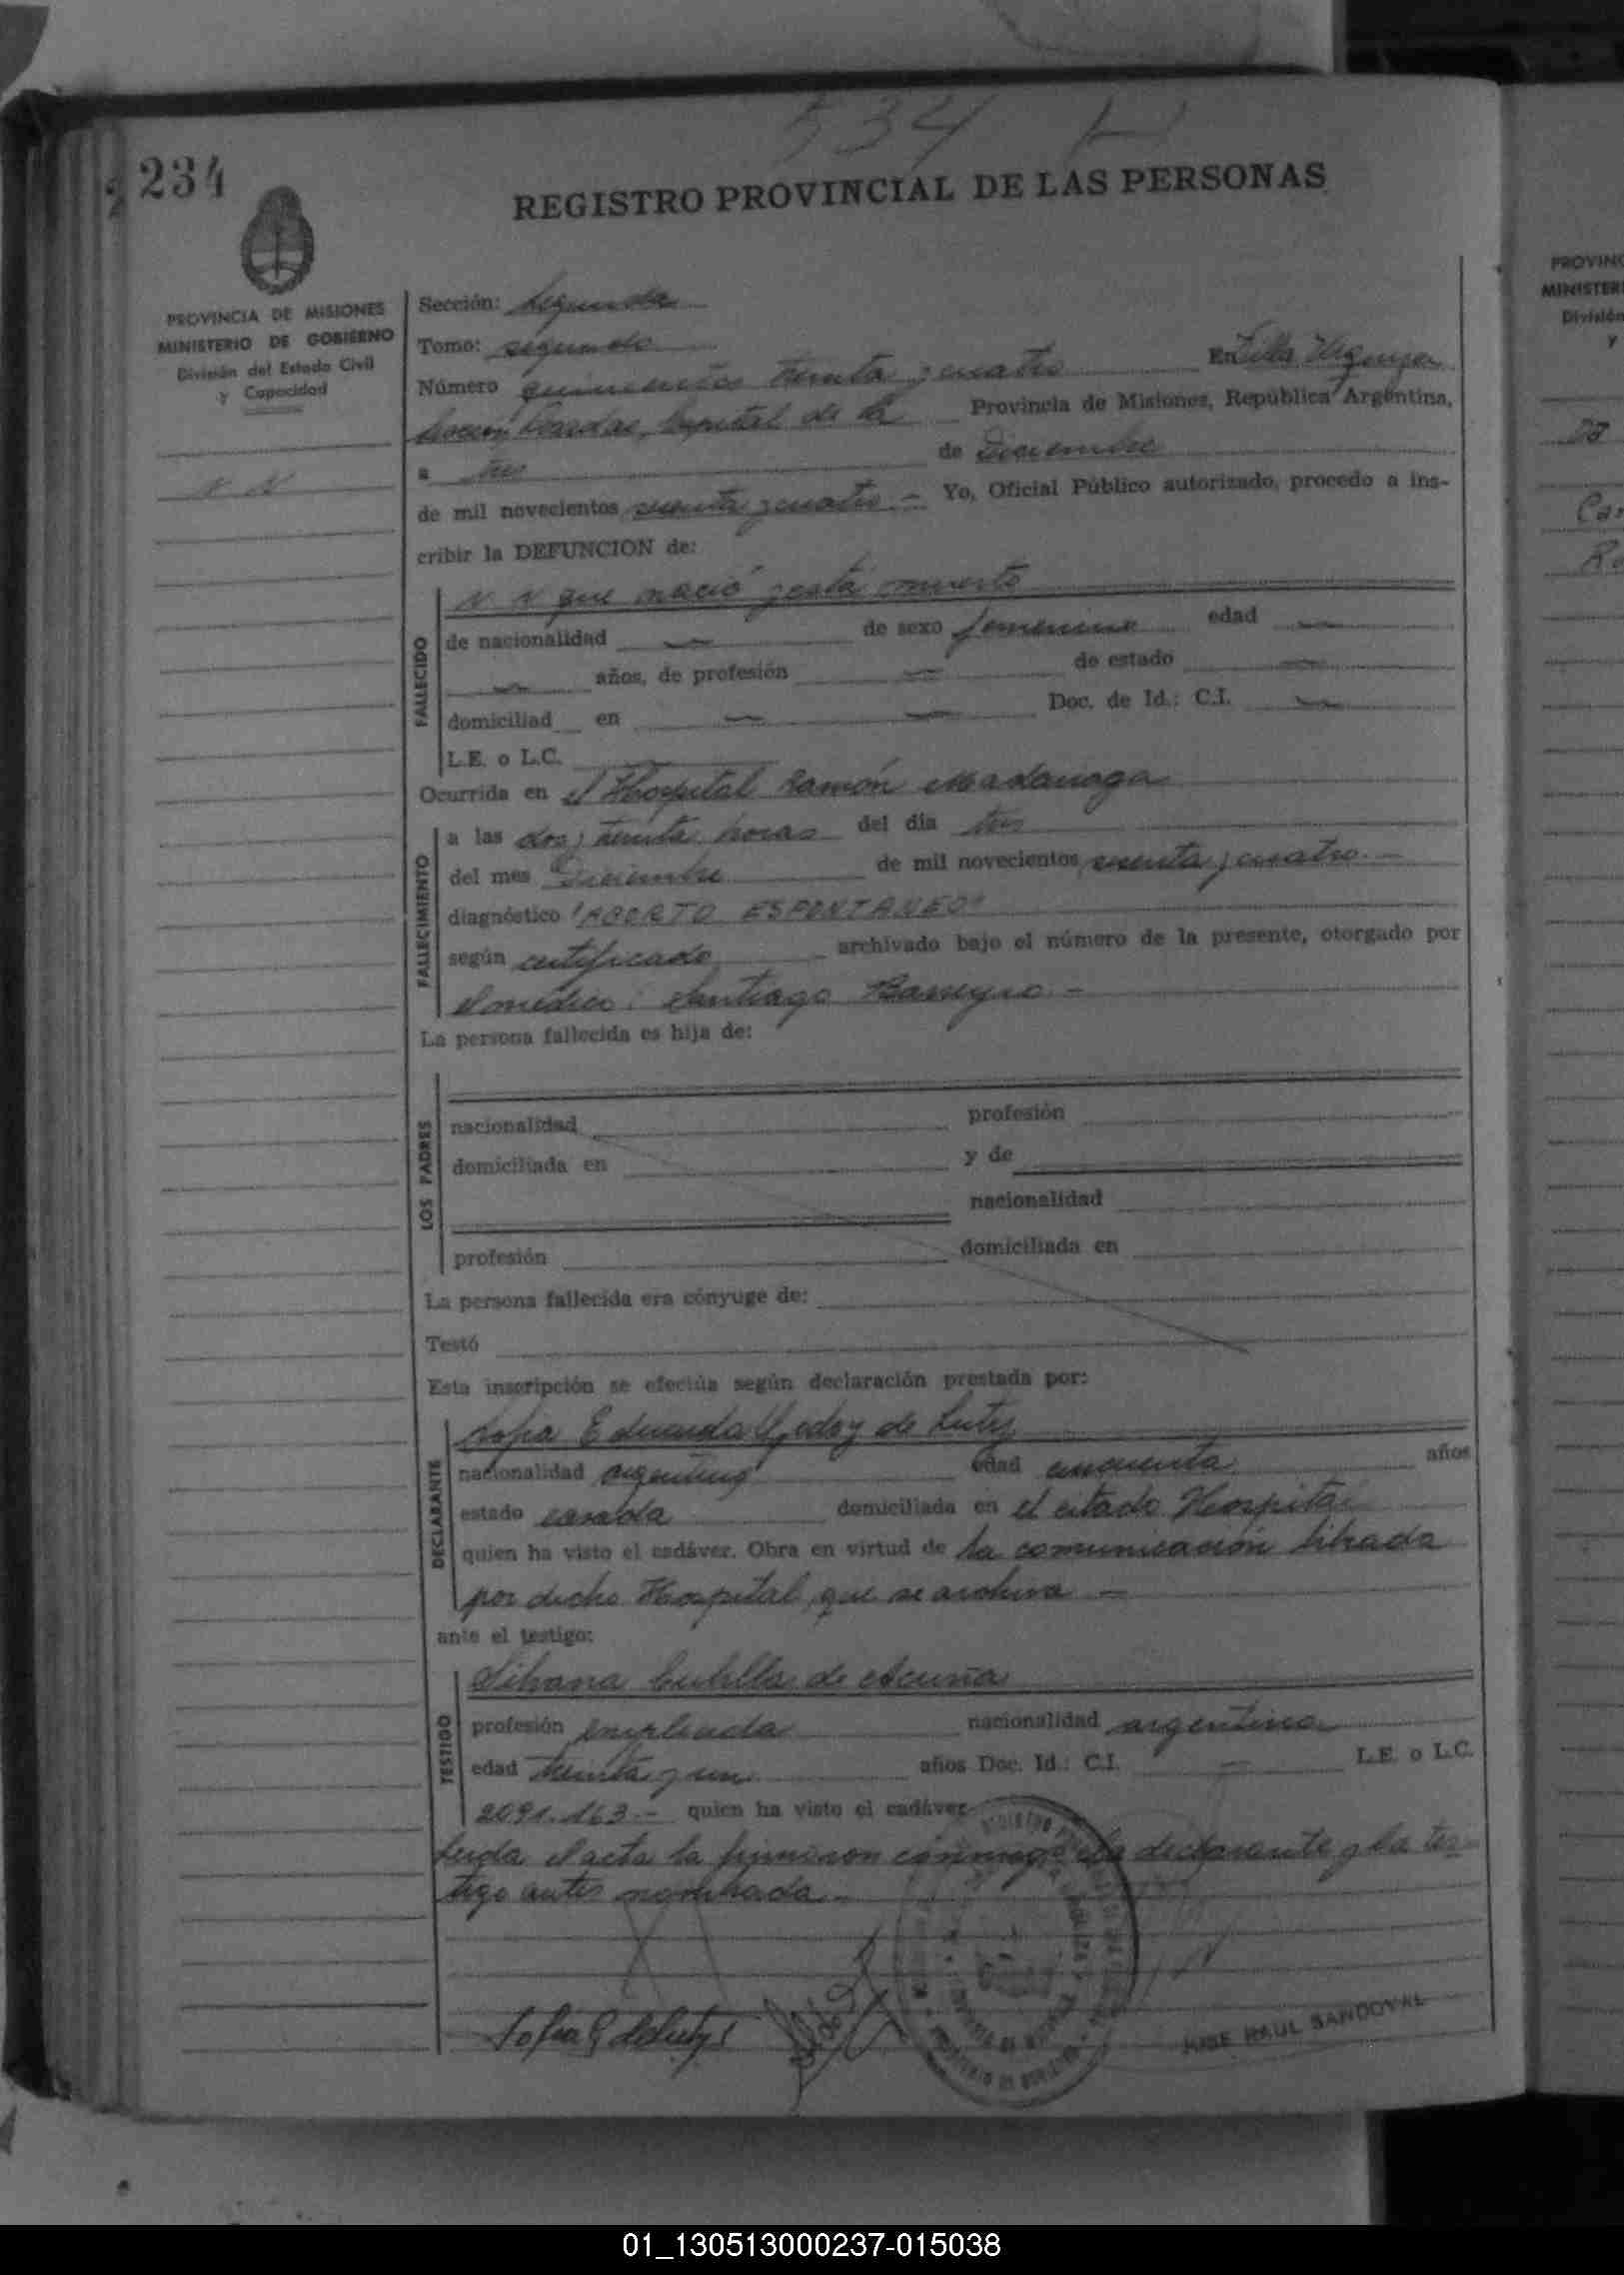 534
234
REGISTRO PROVINCIAL DE LAS PERSONAS
PROVINCIA DE MISIONES
MINISTERIO DE GOBIERNO
División del Estado Civil
y Capacidad
N N
Sección: Segunda
Tomo: segundo
Número quinientos treinta y cuatro En Villa Urquiza
Posadas, Capital de la Provincia de Misiones, República Argentina,
a tres de Diciembre
de mil novecientos sesenta y cuatro.- Yo, Oficial Público autorizado, procedo a ins-
cribir la DEFUNCION de:
FALLECIDO
N. N que nació y está muerto
de nacionalidad — de sexo femenino edad —
— años, de profesión — de estado —
domiciliad en — — Doc. de Id.: C.I. —
L.E. o L.C.
Ocurrida en el Hospital Ramón Madariaga
FALLECIMIENTO
a las dos y treinta horas del día tres
del mes Diciembre de mil novecientos sesenta y cuatro.-
diagnóstico "ABORTO ESPONTANEO"
según certificado archivado bajo el número de la presente, otorgado por
el médico: Santiago Barreyro.-
La persona fallecida es hija de:
LOS PADRES
nacionalidad profesión
domiciliada en y de
nacionalidad
profesión domiciliada en
La persona fallecida era cónyuge de:
Testó
Esta inscripción se efectúa según declaración prestada por:
DECLARANTE
Sofia Eduarda Godoy de Lutez
nacionalidad argentina edad cincuenta años
estado casada domiciliada en el citado Hospital
quien ha visto el cadáver. Obra en virtud de la comunicación librada
por dicho Hospital, que se archiva.-
ante el testigo:
TESTIGO
Silvana Cubilla de Acuña
profesión empleada nacionalidad argentina
edad treinta y un años Doc. Id.: C.I. — L.E. o L.C.
2091.163.- quien ha visto el cadáver
Leida el acta la firmaron conmigo la declarante y la tes-
tigo antes nombrada.-
Sofia G de Lutez
JOSE RAUL SANDOVAL
PROVINC
MINISTERI
División
y
Ca
Ro
01_130513000237-015038